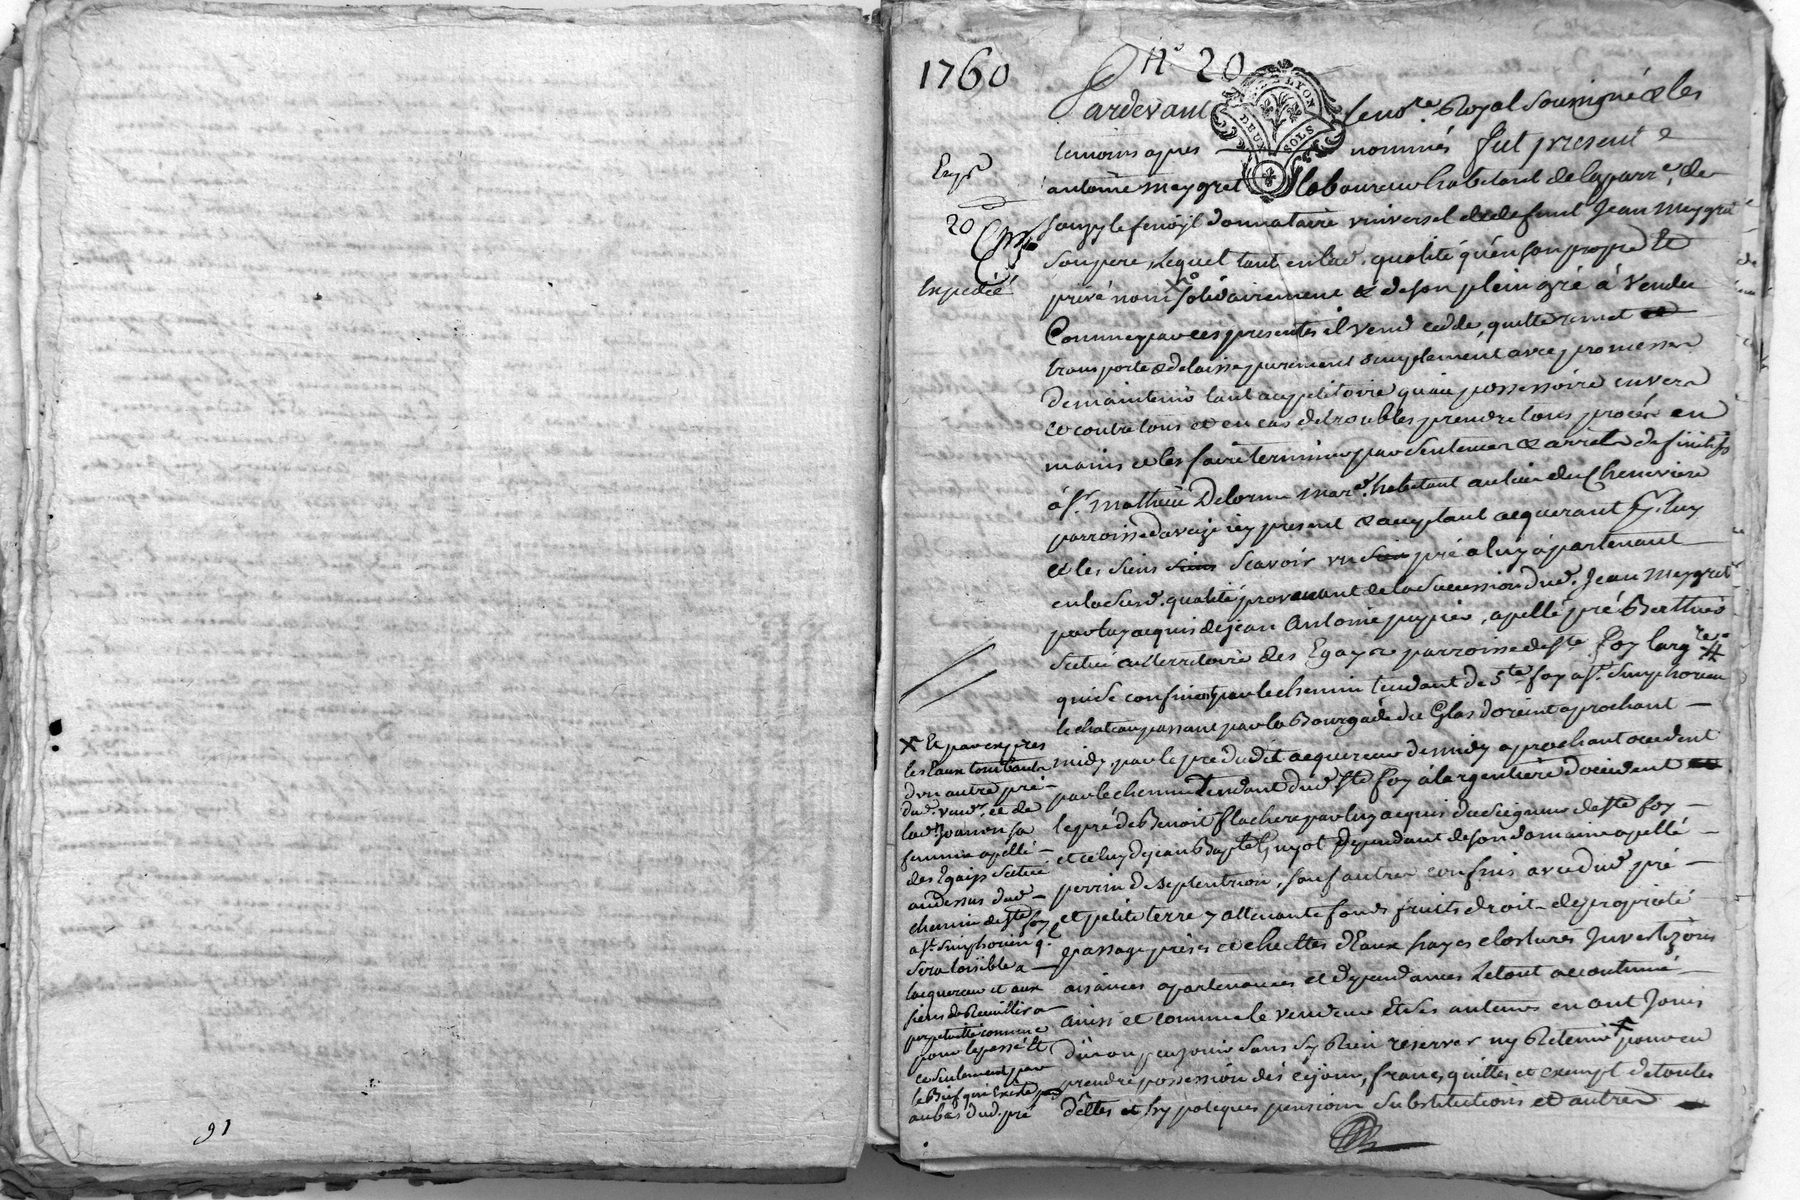 91
1760
N° 20
Pardevant le no.re Royal soussigné & les
LYON
DEUX SOLS
temoins apres nommés fut present
antoine meygret laboureur habitant de la parr.e de
souzy le donnataire universel de defunt Jean Meygret
son pere, lequel tant en lad. qualité qu'en son propre et
privé nom solidairement & de son plein gré à vendu
Comme par ces presentes il vend cedde, quitte remet
transporte & delaisse purement & simplement avec promesse
de maintenir tant au petitoire qu'au possessoire envers
et contre tous et en cas de troubles prendre tous procés en
mains et les faire terminer par sentence & arrets definitifs
à Sr. Mathieu Delorme mar.d habitant au lieu du Cheneviere
parroisse d'aveize icy present & acceptant acquerant p.r luy
et les siens sçavoir un pré a luy apartenant
en lad. qualité provenant de la succession dud. Jean Meygret
par luy acquis de jean Antoine pupier, apellé pré Berthier
situé au territoire des Egayes parroisse de Ste foy l'arg.re
qui se confine par le chemin tendant de Ste foy a St. Simphorien
le chateau passant par la Bourgade du Glas d'orient aprochant
midy, par le pré dudit acquereur de midy aprochant occident
par le chemin tendant dud. Ste foy à largentiere d'occident
le pré de Benoit flachere par luy acquis du seigneur de Ste foy
et celuy de jean Bapte Guyot dependant de son domaine apellé
perrin de septentrion, sauf autres confins avec dud. pré
et petite terre y attenante fonds fruits droit de proprieté
passage prises et chuttes d'Eaux hayes clostures
aisances apartenances et dependances le tout accoutumé
ainsi et comme le vendeur et ses auteurs en ont jouis
du ou pu jouir sans sy Rien reserver ny Retenir pour en
prendre possession dès cejour, franc, quitte et exempt de toutes
dettes et hypoteques pensions substitutions et autres
20
Expedié
Et par exprès
les Eaux tombants
d'un autre pré
dud. vend.r et de
lad. Joannon sa
femme apellé
des Egayes situé
audessus dud.
chemin de Ste foy
a St. Simphorien q.l
sera loisible a
lacquereur et aux
siens de Reuillir a
perpetuité comme
pour le passé et
ce seulement par
le Bief qui Existe par
au bas dud. pré